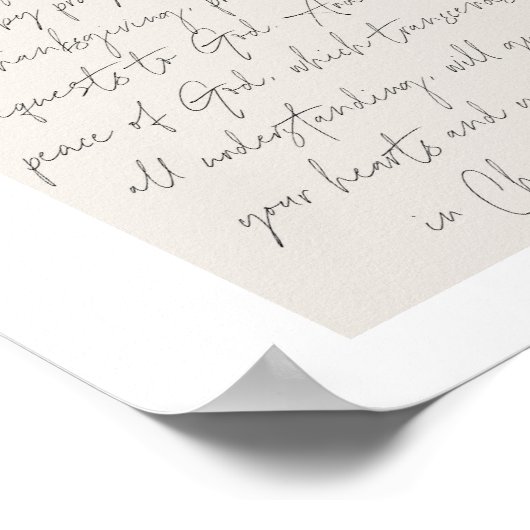 by pra
hanksgiving, pr
quests to God. And
peace of God, which transcends
all understanding, will gu
your hearts and m
in Ch